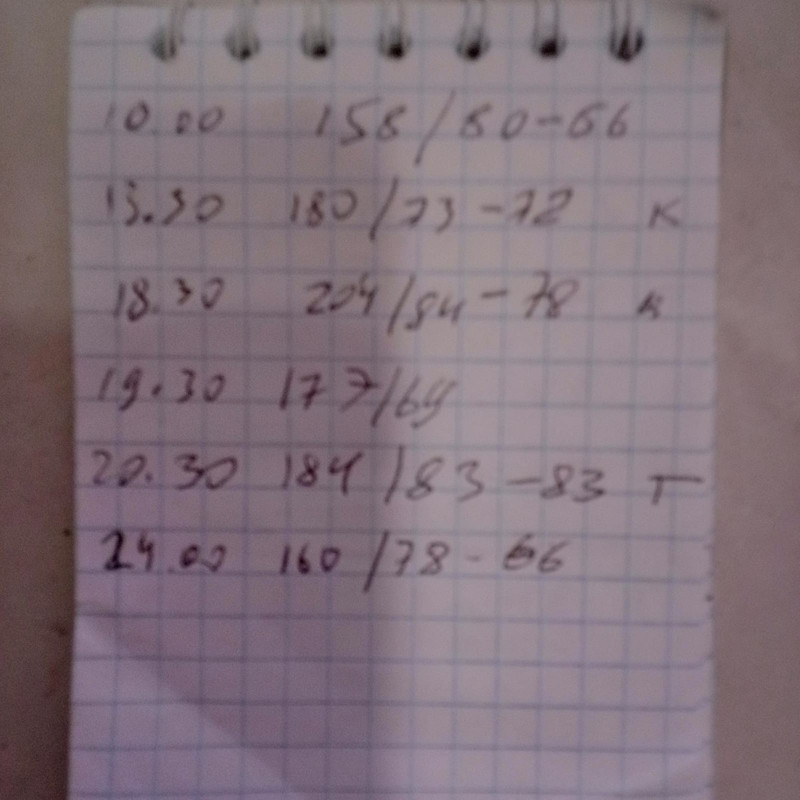 10.00 158/80-66
13.30 180/73-72 к
18.30 204/84-78 к
19.30 177/69
20.30 184/83-83 Т
24.00 160/78-66